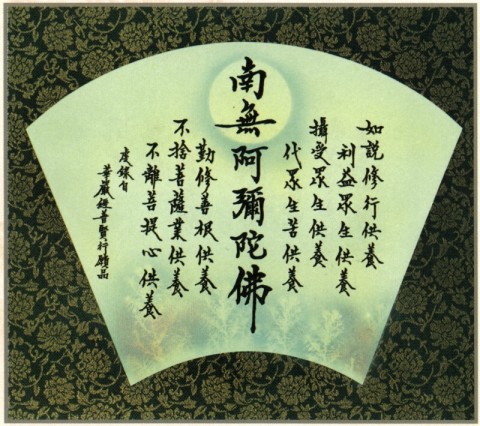 如說修行供養
利益眾生供養
攝受眾生供養
代眾生苦供養
南無阿彌陀佛
勤修善根供養
不捨菩薩業供養
不離菩提心供養
恭錄自
華嚴經普賢行願品